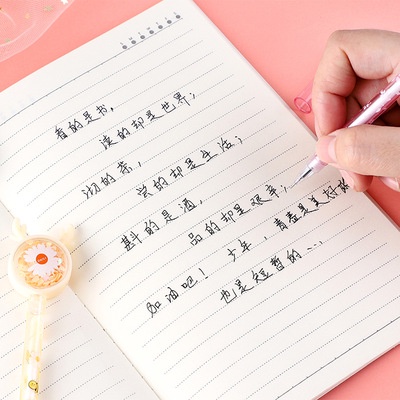 看的是书，
读的却是世界；
沏的茶，
尝的却是生活；
斟的是酒，
品的却是艰辛；
少年，青春是美好的
加油吧！
也是短暂的……